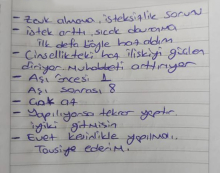 - Zevk almama, isteksizlik sorunu
- istek arttı, sıcak davranma
ilk defa böyle haz aldım
- Cinsellikteki haz ilişkiyi güçlen
diriyor. Muhabbeti arttırıyor
- Aşı öncesi 1
Aşı sonrası 8
- Çok az
- Yapılıyorsa tekrar yaptır.
iyiki gitmişim
- Evet kesinlikle yapılmalı.
Tavsiye ederim.